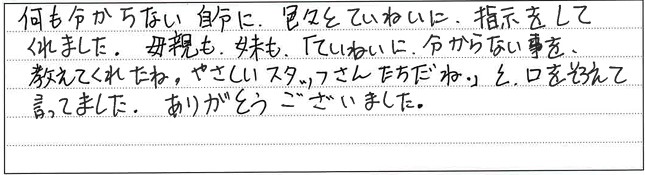 何も分からない自分に、色々とていねいに、指示をして
くれました。母親も、妹も、「ていねいに、分からない事を、
教えてくれたね。やさしいスタッフさんたちだね。」と、口をそろえて
言ってました。ありがとうございました。